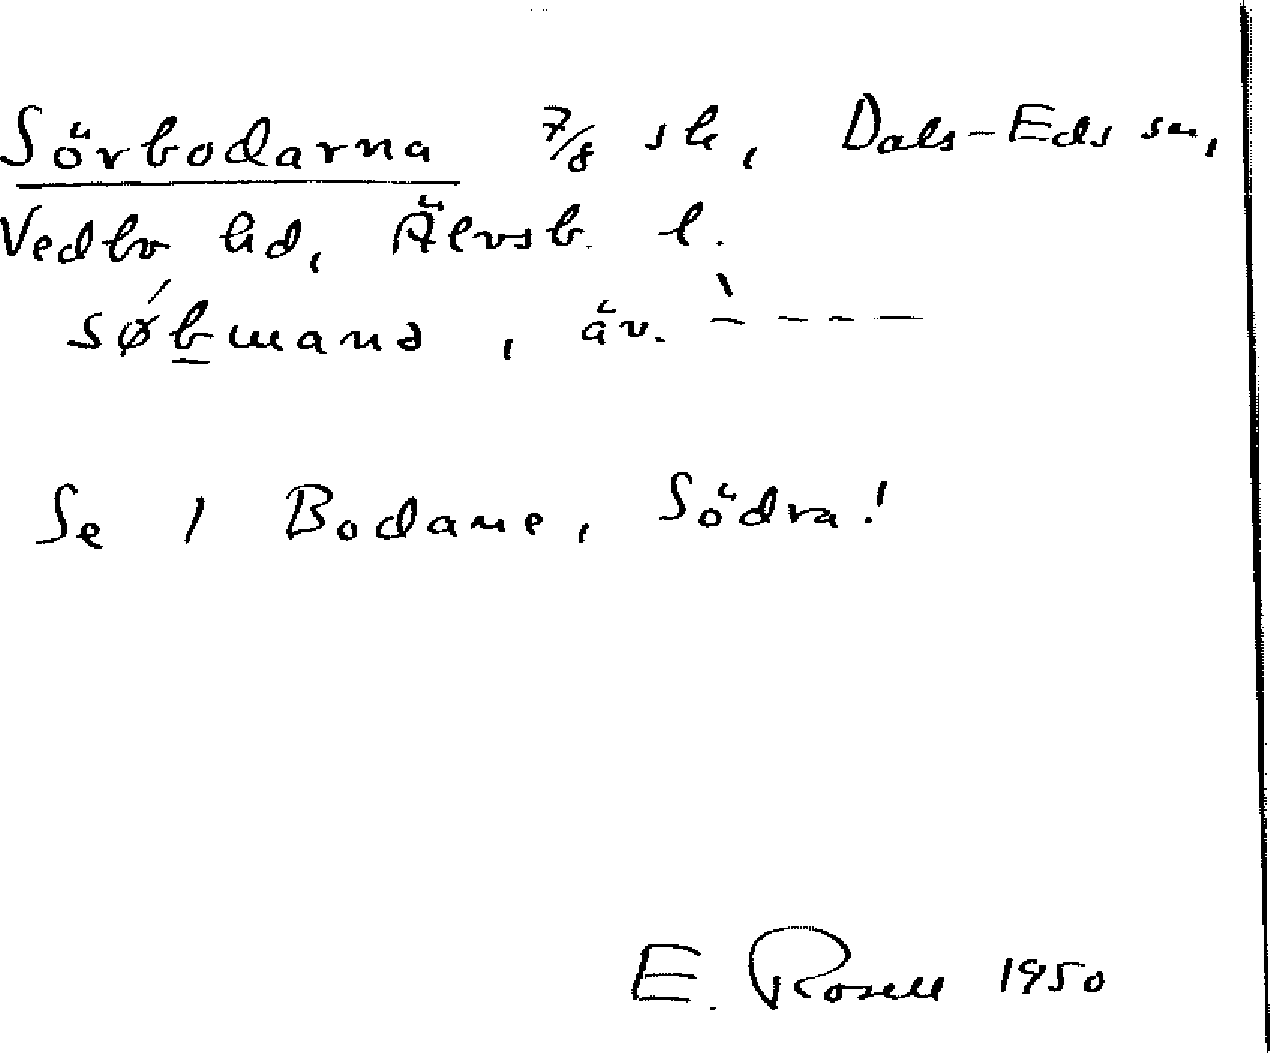 Sörbodarna 7/8 sk, Dals-Eds sn,
Vedbo hd, Älvsb. l.
av. ` – – – –
Se 1 Bodane, Södra!
E. Rosell 1950